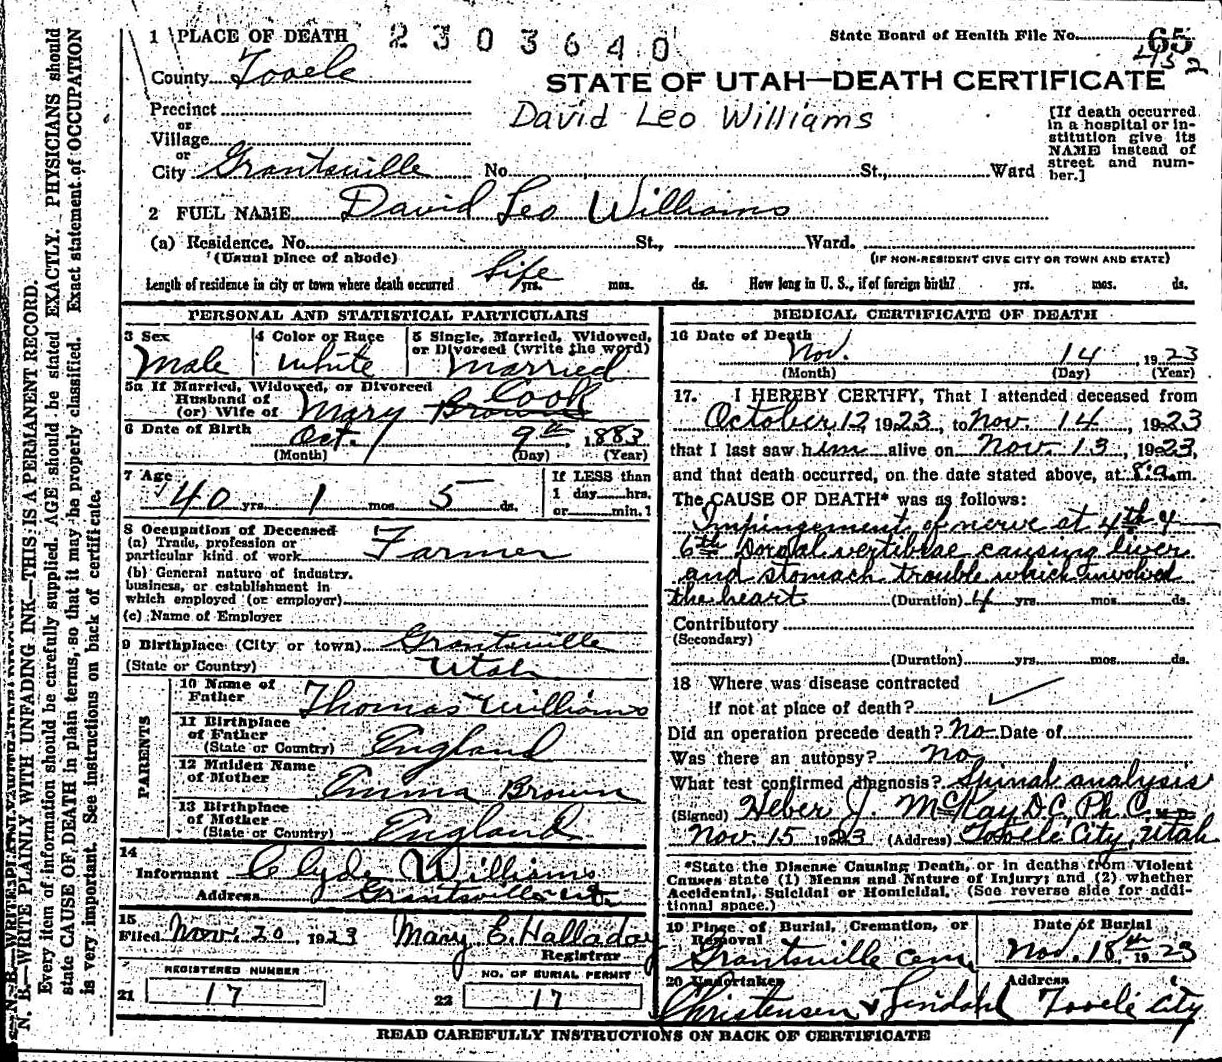 N. B.—WRITE PLAINLY WITH UNFADING INK—THIS IS A PERMANENT RECORD.
Every item of information should be carefully supplied. AGE should be stated EXACTLY. PHYSICIANS should
state CAUSE OF DEATH in plain terms, so that it may be properly classified. Exact statement of OCCUPATION
is very important. See instructions on back of certificate.
1 PLACE OF DEATH 2303640 State Board of Health File No. 65
County Tooele
STATE OF UTAH—DEATH CERTIFICATE
Precinct
David Leo Williams
[If death occurred in a hospital or institution give its NAME instead of street and number.]
or
Village
or
City Grantsville No. St., Ward
2 FULL NAME David Leo Williams
(a) Residence. No. St., Ward.
(Usual place of abode) (IF NON-RESIDENT GIVE CITY OR TOWN AND STATE)
Length of residence in city or town where death occurred Life yrs. mos. ds. How long in U. S., if of foreign birth? yrs. mos. ds.
PERSONAL AND STATISTICAL PARTICULARS
3 Sex 4 Color or Race 5 Single, Married, Widowed, or Divorced (write the word)
Male White Married
5a If Married, Widowed, or Divorced
Husband of
(or) Wife of Mary Brown Cook
6 Date of Birth Oct. 9th, 1883
(Month) (Day) (Year)
7 Age 40 yrs. 1 mos. 5 ds. If LESS than 1 day hrs. or min.?
8 Occupation of Deceased
(a) Trade, profession or particular kind of work Farmer
(b) General nature of industry, business, or establishment in which employed (or employer)
(c) Name of Employer
9 Birthplace (City or town) Grantsville
(State or Country) Utah
PARENTS
10 Name of Father Thomas Williams
11 Birthplace of Father (State or Country) England
12 Maiden Name of Mother Emma Brown
13 Birthplace of Mother (State or Country) England
14
Informant Clyde Williams
Address Grantsville Ut.
15
Filed Nov. 20, 1923 Mary E. Halladay
Registrar
REGISTERED NUMBER NO. OF BURIAL PERMIT
21 17 22 17
MEDICAL CERTIFICATE OF DEATH
16 Date of Death
Nov. 14, 1923
(Month) (Day) (Year)
17. I HEREBY CERTIFY, That I attended deceased from
October 12 1923, to Nov. 14, 1923
that I last saw him alive on Nov. 13, 1923,
and that death occurred, on the date stated above, at 8:a.m.
The CAUSE OF DEATH* was as follows:
Impingement of nerve at 4th &
6th Dorsal vertibrae causing liver
and stomach trouble which involved
the heart (Duration) 4 yrs. mos. ds.
Contributory
(Secondary)
(Duration) yrs. mos. ds.
18 Where was disease contracted
if not at place of death?
Did an operation precede death? No Date of
Was there an autopsy? no
What test confirmed diagnosis? Spinal analysis
(Signed) Heber J. McKay D.C. Ph. C.
Nov. 15 1923 (Address) Tooele City, Utah
*State the Disease Causing Death, or in deaths from Violent
Causes state (1) Means and Nature of Injury; and (2) whether
Accidental, Suicidal or Homicidal. (See reverse side for addi-
tional space.)
19 Place of Burial, Cremation, or Removal Date of Burial
Grantsville Cem. Nov. 18th 1923
20 Undertaker Address
Christensen & Lindahl Tooele City
READ CAREFULLY INSTRUCTIONS ON BACK OF CERTIFICATE